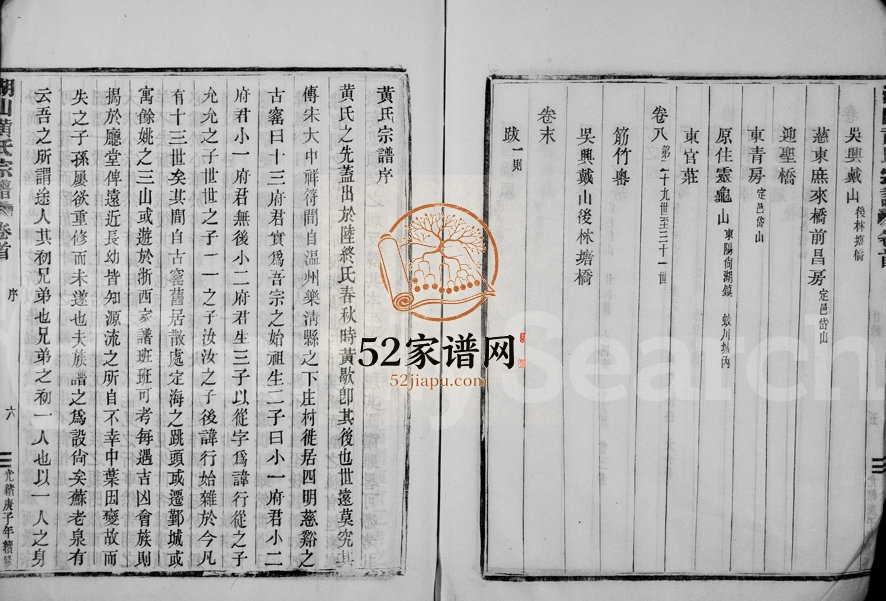 吳興戴山 後林塘橋
慈東庶來橋前昌房 定邑岱山
迎聖橋
東青房 定邑岱山
原住靈龜山 東陽尙湖鎮 蛟川城內
東官莊
卷八 第二十九世至三十一世
筋竹嶴
吳興戴山後林塘橋
卷末
跋 一則
黃氏宗譜序
黃氏之先蓋出於陸終氏春秋時黃歇卽其後也世遠莫究其
傳宋大中祥符間自温州樂淸縣之下庄村徙居四明慈谿之
古窰曰十三府君實爲吾宗之始祖生二子曰小一府君小二
府君小一府君無後小二府君生三子以從字爲諱行從之子
允允之子世世之子一一之子汝汝之子後諱行始雜於今凡
有十三世矣其間自古窰舊居散處定海之跳頭或遷鄞城或
寓餘姚之三山或遊於浙西家譜班班可考每遇吉凶會族則
揭於廳堂俾遠近長幼皆知源流之所自不幸中葉因變故而
失之子孫屢欲重修而未遂也夫族譜之爲設尙矣蘇老泉有
云吾之所謂途人其初兄弟也兄弟之初一人也以一人之身
湖山黃氏宗譜 卷首
序
六
光緒庚子年續修
52家谱网
52jiapu.com